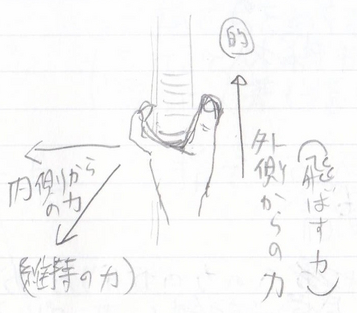 的
外側からの力
(飛ばす力)
内側から
の力
(維持の力)